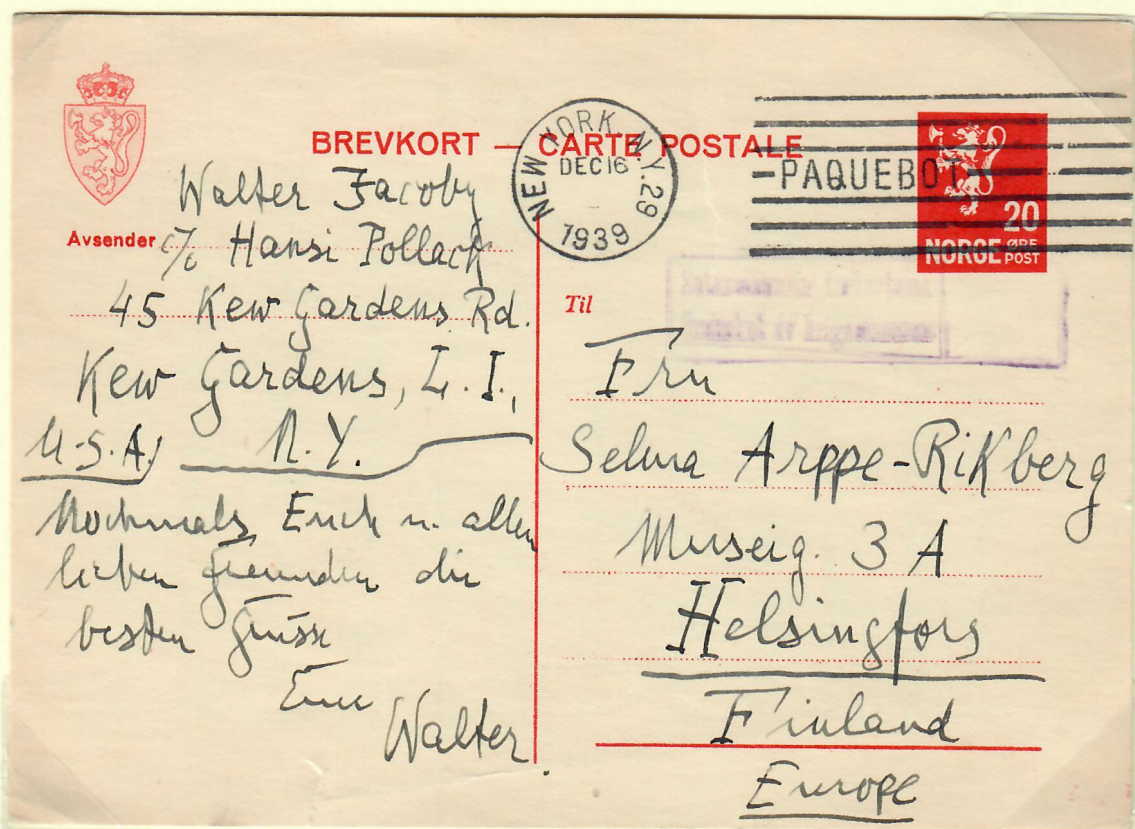 BREVKORT — CARTE POSTALE
NEW YORK N.Y. 29
DEC 16
1939
PAQUEBOT
20
NORGE ØRE POST
Avsender
Walter Jacoby
c/o Hansi Pollack
45 Kew Gardens Rd.
Kew Gardens, L. I.,
U.S.A. N. Y.
Nochmals Euch u. allen
lieben Freunden die
besten Grüsse
Euer
Walter
Til
Fru
Selma Arppe-Rikberg
Museig. 3 A
Helsingfors
Finland
Europe